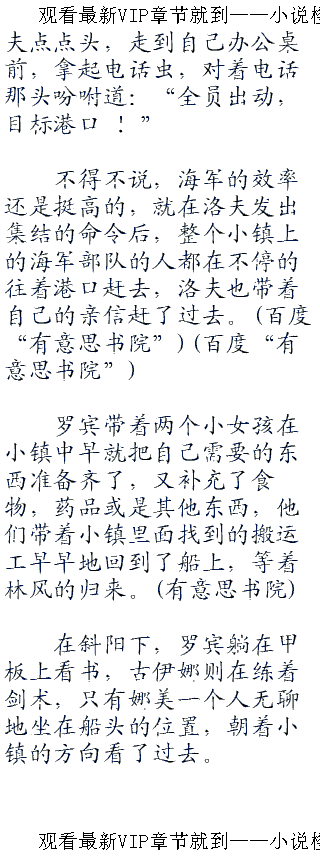 观看最新VIP章节就到——小说楼
夫点点头，走到自己办公桌
前，拿起电话虫，对着电话
那头吩咐道：“全员出动，
目标港口 ！”
不得不说，海军的效率
还是挺高的，就在洛夫发出
集结的命令后，整个小镇上
的海军部队的人都在不停的
往着港口赶去，洛夫也带着
自己的亲信赶了过去。（百度
“有意思书院”）（百度“有
意思书院”）
罗宾带着两个小女孩在
小镇中早就把自己需要的东
西准备齐了，又补充了食
物，药品或是其他东西，他
们带着小镇里面找到的搬运
工早早地回到了船上，等着
林风的归来。（有意思书院）
在斜阳下，罗宾躺在甲
板上看书，古伊娜则在练着
剑术，只有娜美一个人无聊
地坐在船头的位置，朝着小
镇的方向看了过去。
观看最新VIP章节就到——小说楼